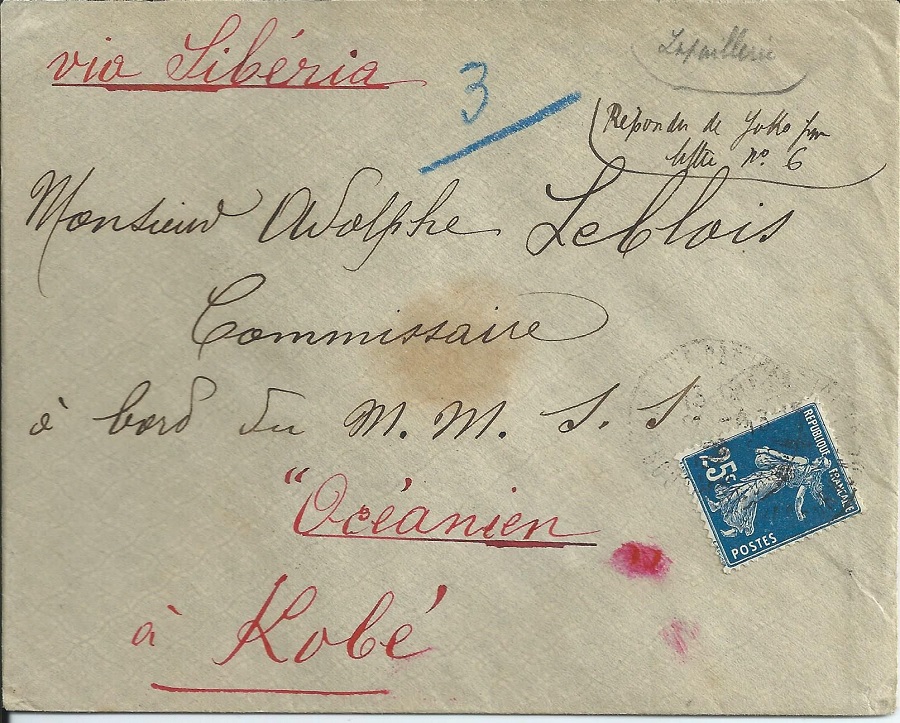 via Sibéria
3
Répondu de Yoko par
lettre no. 6
Monsieur Adolphe Leblois
Commissaire
à bord du M. M. S. S
"Océanien
à Kobé
REPUBLIQUE FRANÇAISE
25c
POSTES